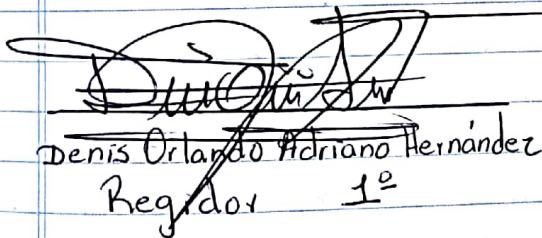 Denis Orlando Adriano Hernández
Regidor 1º